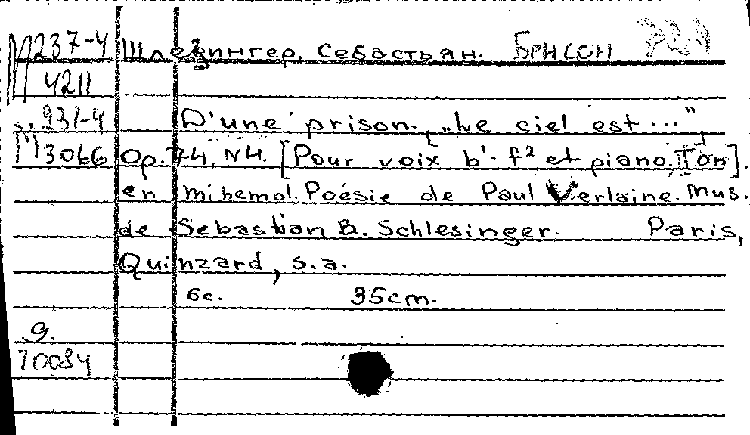 М237-4 Шлезингер, Себастьян. БРНСОН
4211
931-4 D'une prison. ["Le ciel est..."],
М3066 Op. 74, N4. [Pour voix b'-f² et piano, Ton].
en mi bemol. Poésie de Paul Verlaine. Mus.
de Sebastian B. Schlesinger. Paris,
Quinzard, s.a.
6c. 35cm.
9.
70034